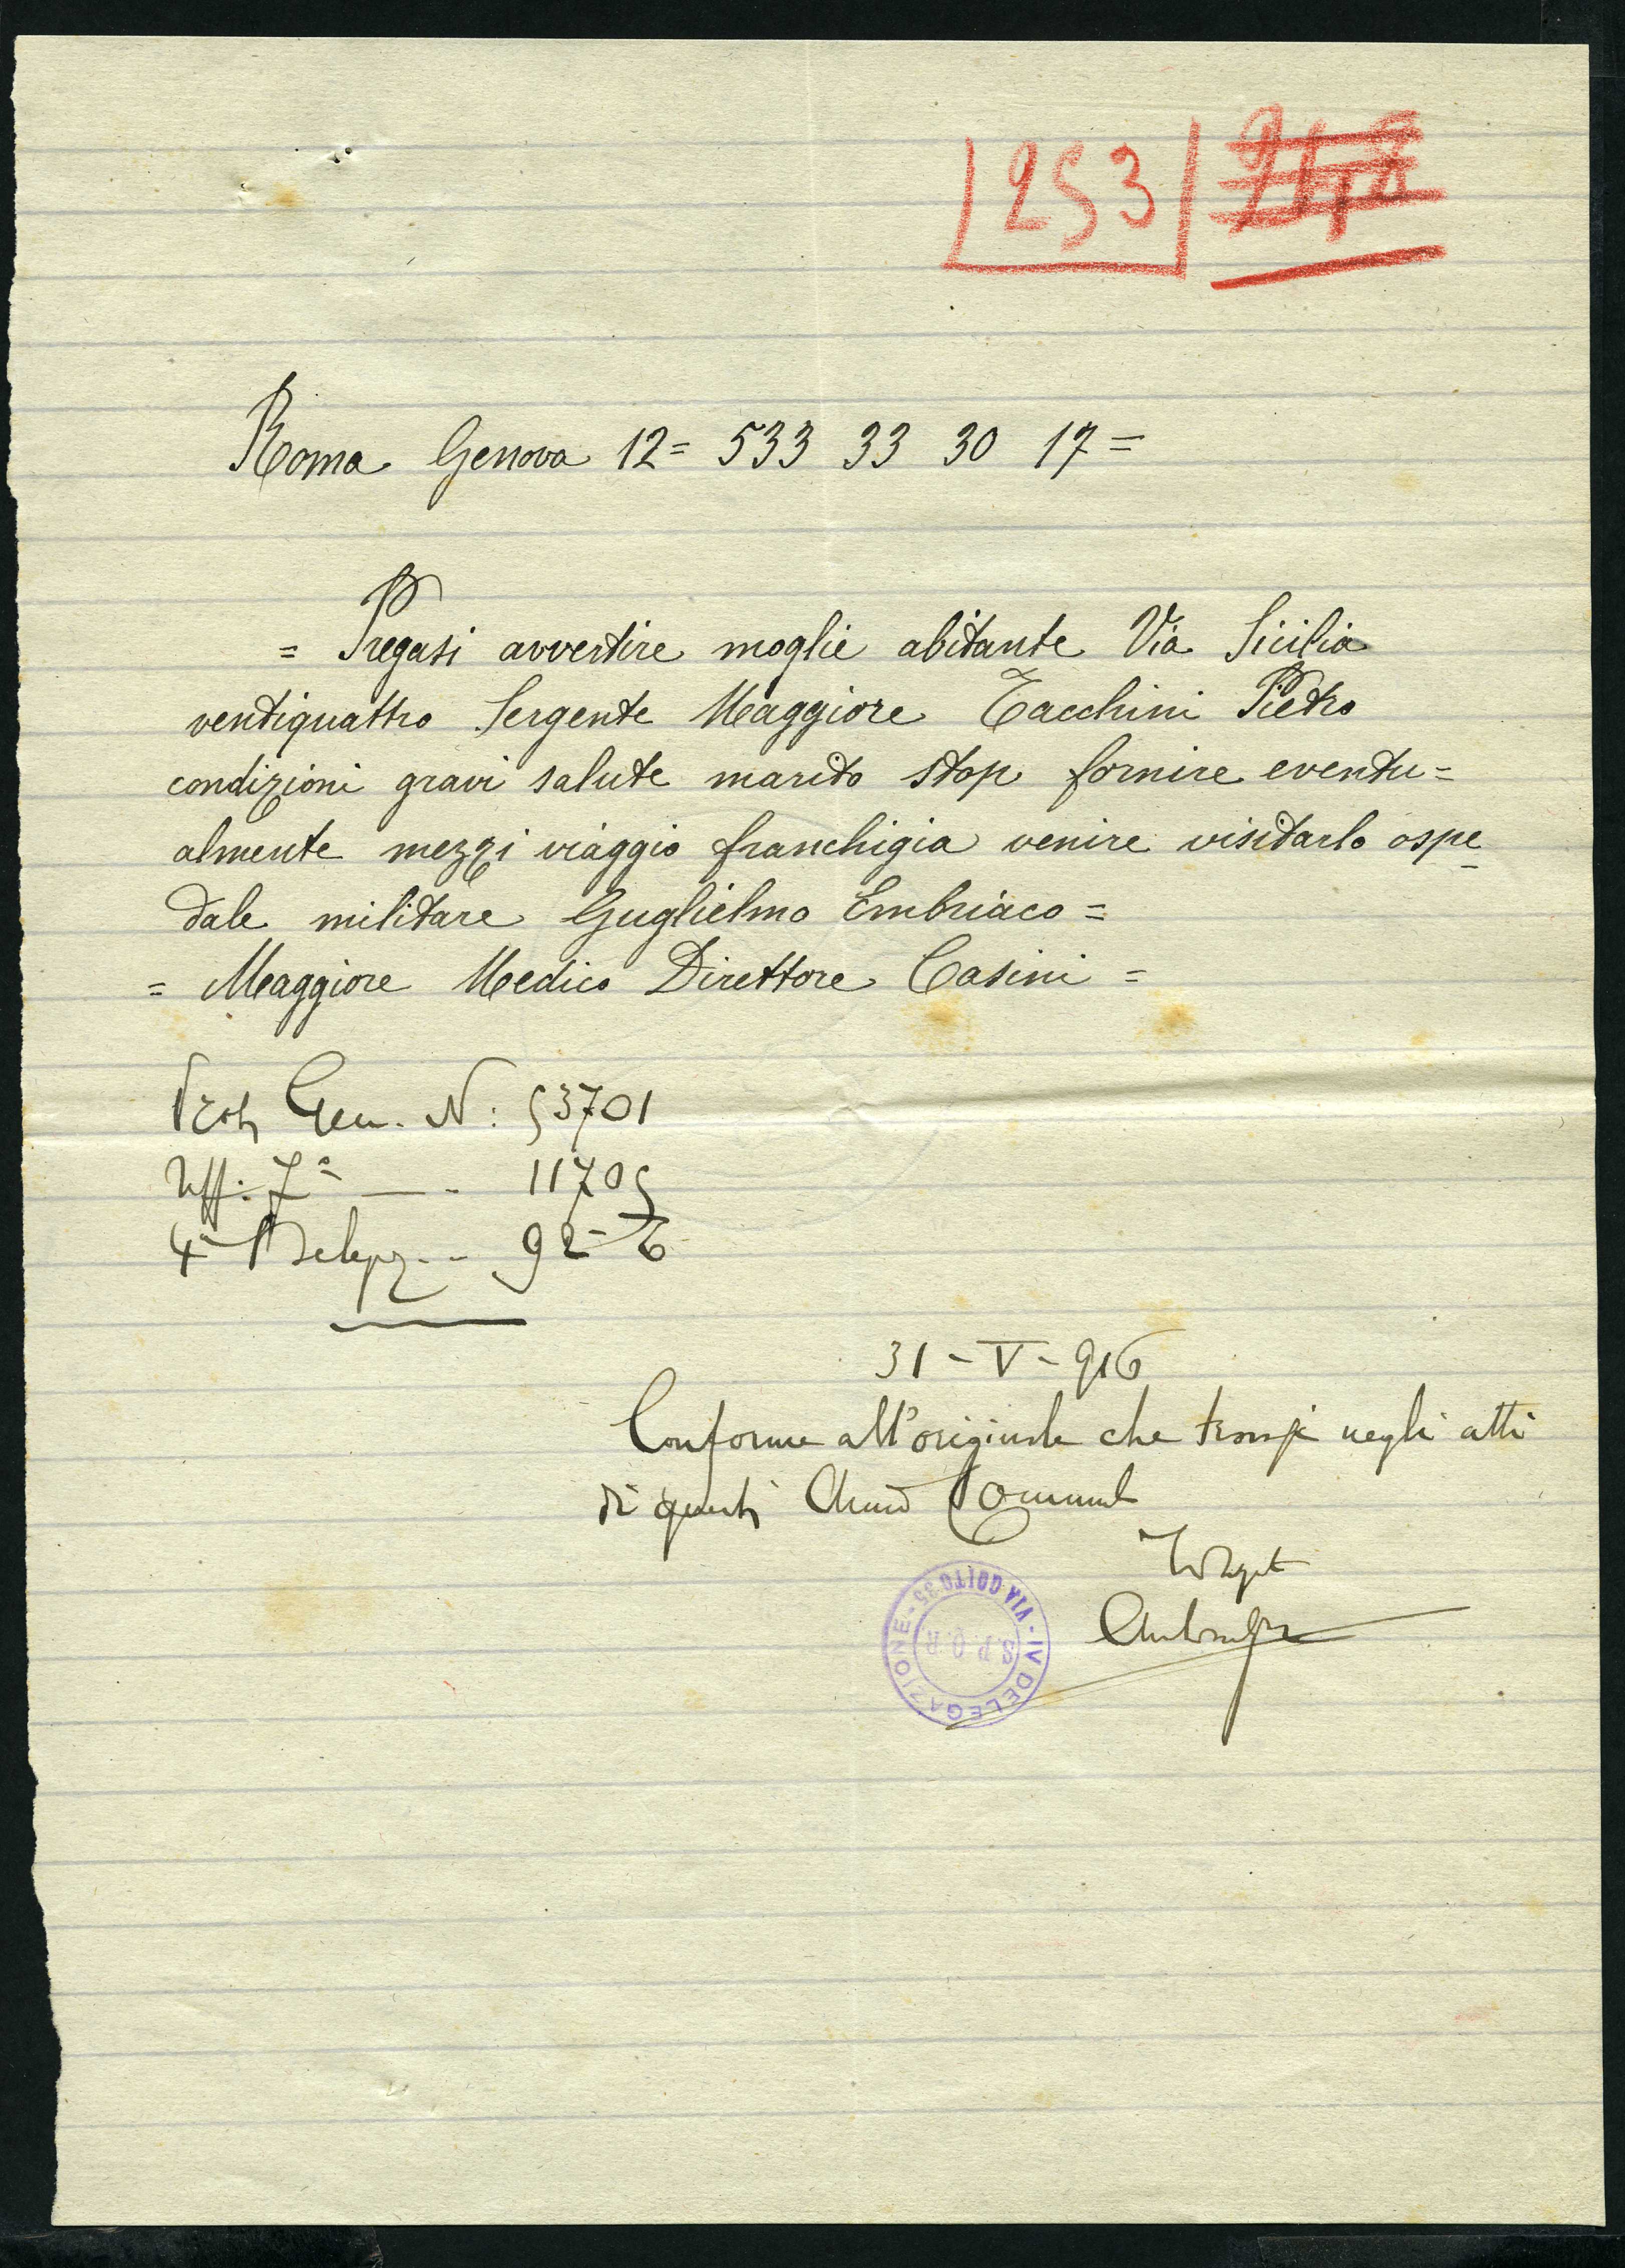 253
Roma Genova 12= 533 33 30 17=
= Pregasi avvertire moglie abitante Via Sicilia
ventiquattro Sergente Maggiore Tacchini Pietro
condizioni gravi salute marito stop fornire eventu=
almente mezzi viaggio franchigia venire visitarlo ospe
dale militare Guglielmo Embriaco=
= Maggiore Medico Direttore Casini =
Prot Gen. N: 53701
Uff: 7ª — - 11705
4ª - 92-6
31-V-916
Conforme all'originale che trovasi negli atti
di questi
IV DELEGAZIONE - VIA GOITO 35 -
S.P.Q.R.